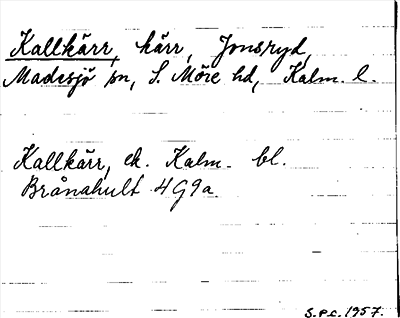 Kallkärr, kärr, Jonsryd,
Madesjö sn, S. Möre hd, Kalm. l.
Kallkärr, ek. Kalm. bl.
Brånahult 4G9a
S.P.C. 1957.